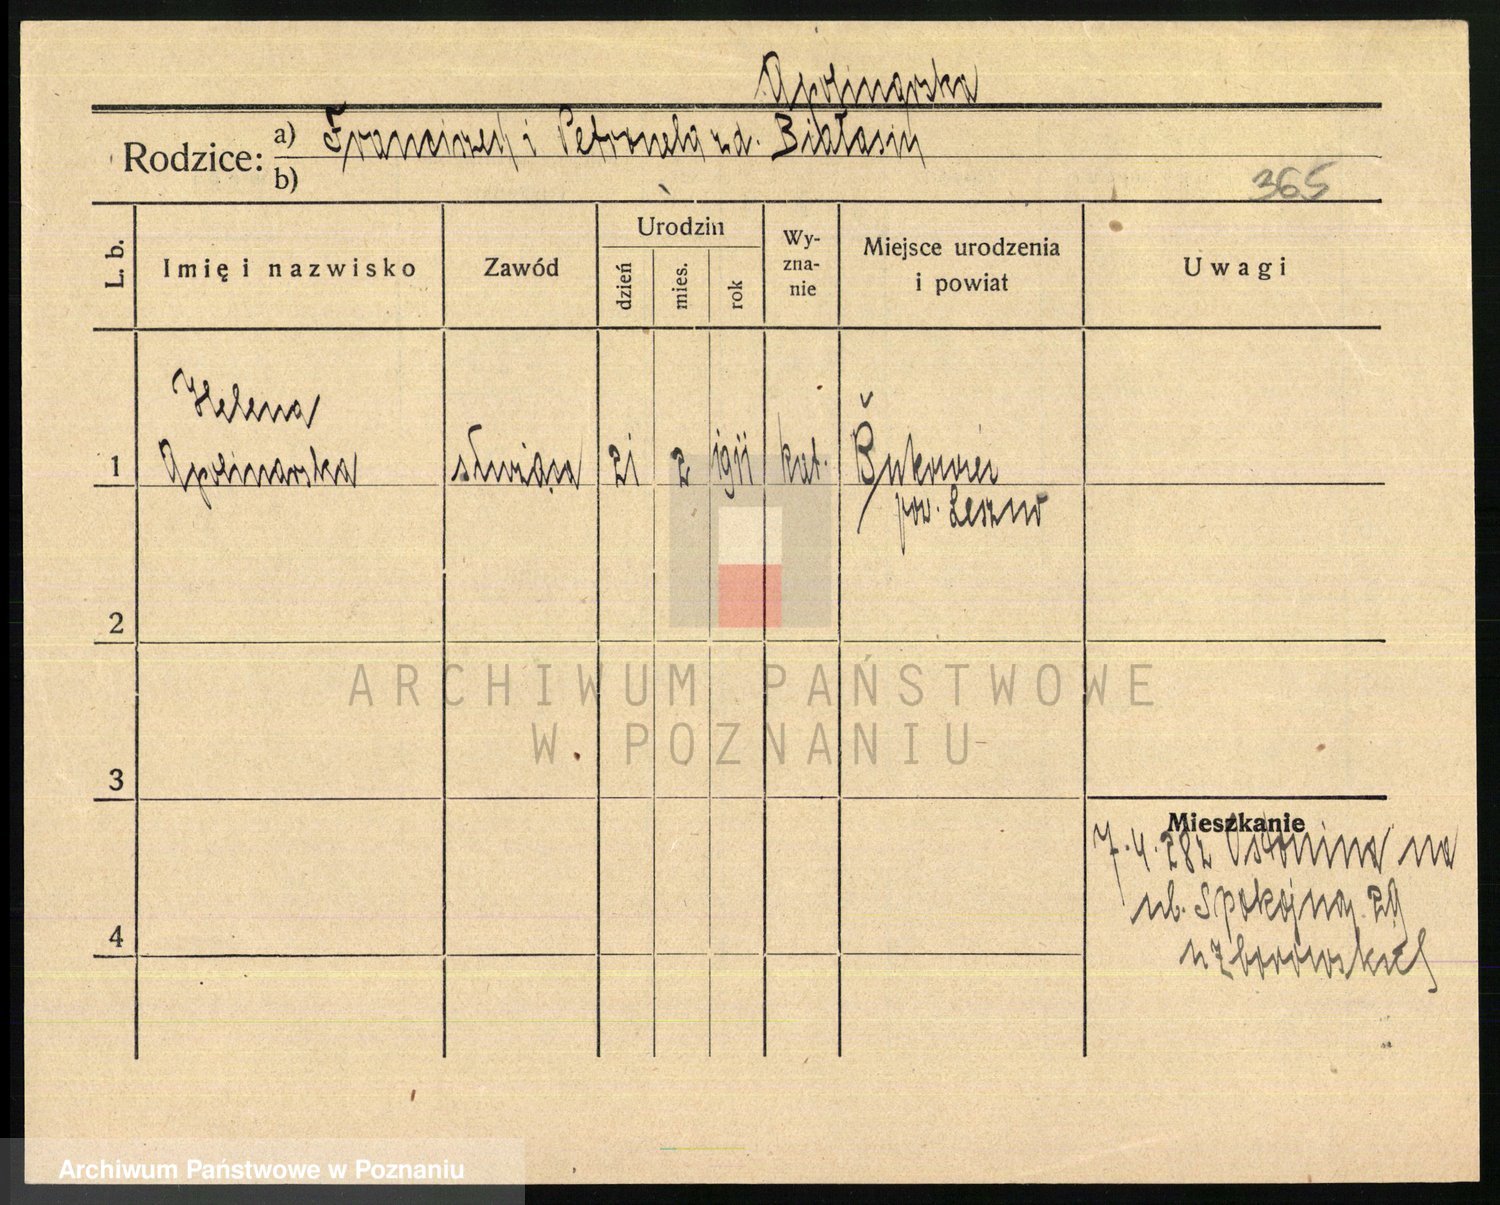 Apolinarska
Rodzice: a) Franciszek i Petronela zd. Białasik
b)
365
L. b.
Imię i nazwisko
Zawód
Urodzin
dzień
mies.
rok
Wy-
zna-
nie
Miejsce urodzenia
i powiat
Uwagi
Helena
1 Apolinarska służąca 21 2 1911 kat. Bukowiec
pow. Leszno
2
ARCHIWUM PAŃSTWOWE
W POZNANIU
3
Mieszkanie
7.4.28 z Osłonina na
ul. Spokojną 29
u Zborowskich
4
Archiwum Państwowe w Poznaniu